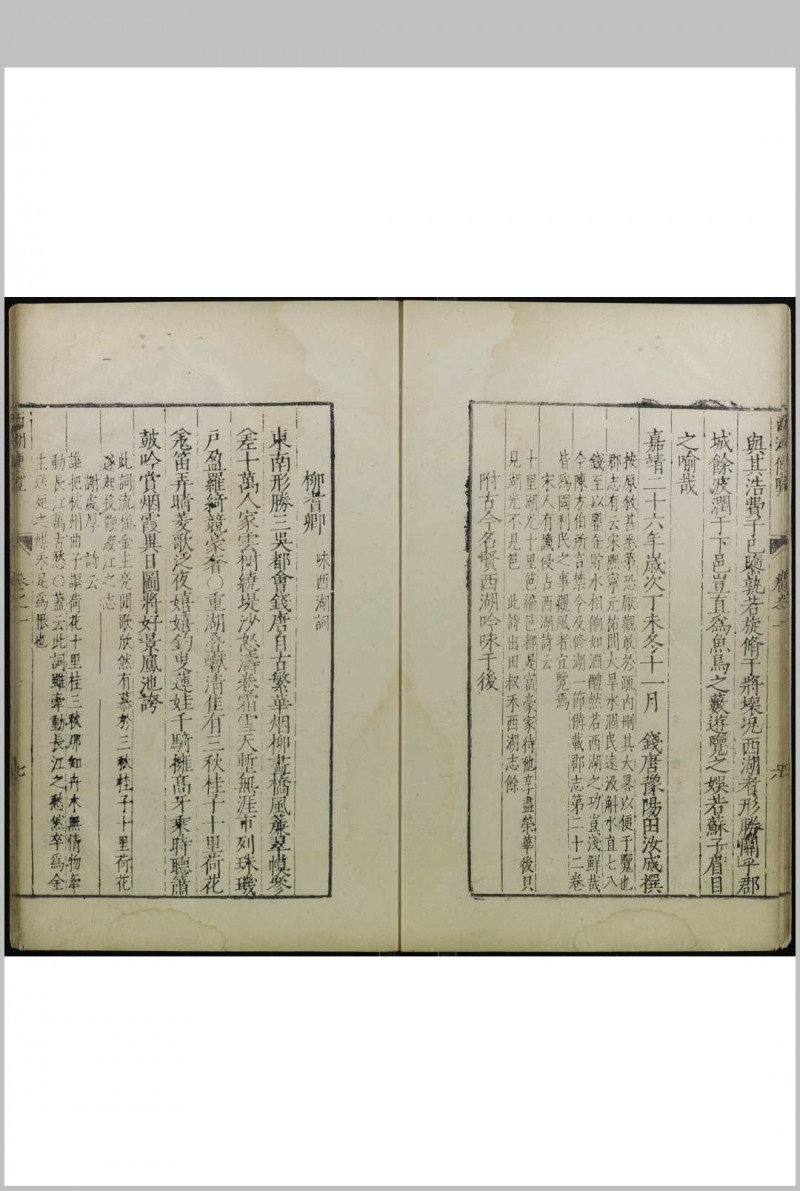 與其浩費于已隳孰若旋脩于將壞況西湖者形勝關乎郡
城餘波潤于下邑豈直為魚鳥之藪遊覽之娛若蘇子眉目
之喻哉
嘉靖二十六年歲次丁未冬十一月 錢唐豫陽田汝成撰
按原敘甚悉第恐厭觀放於疏內刪其大畧以便于覽也
郡志有云宋熙寧元祐間大旱水涸民遠汲斛水直七八
錢至以罌缶貯水相餉如酒醴然若西湖之功豈淺鮮哉
今陳方伯所言禁令及修湖一節俻載郡志第二十二卷
皆為國利民之事觀風者宜覽焉
宋人有譏侵占西湖詩云
十里湖光十里笆編笆都是富豪家待他享盡榮華後只
見湖光不見笆 此詩出田叔禾西湖志餘
附古今名賢西湖吟咏于後
卷之一
柳耆卿 咏西湖詞
東南形勝三吳都會錢唐自古繁華烟柳畫橋風簾翠幙參
差十萬人家雲樹繞堤沙怒濤卷霜雪天塹無涯市列珠璣
戶盈羅綺競豪奢○重湖疊巘清佳有三秋桂子十里荷花
羌笛弄晴菱歌泛夜嬉嬉釣叟蓮娃千騎擁高牙乘時聽簫
鼓吟賞烟霞異日圖將好景鳳池誇
此詞流傳金主亮聞歌欣然有慕於三秋桂子十里荷花
遂起投鞭渡江之志
謝處厚 詩云
誰把杭州曲子謳荷花十里桂三秋那知卉木無情物牽
動長江萬古愁○蓋云此詞雖牽動長江之愁然卒為金
主送死之媒未足為恨也
卷之一
七